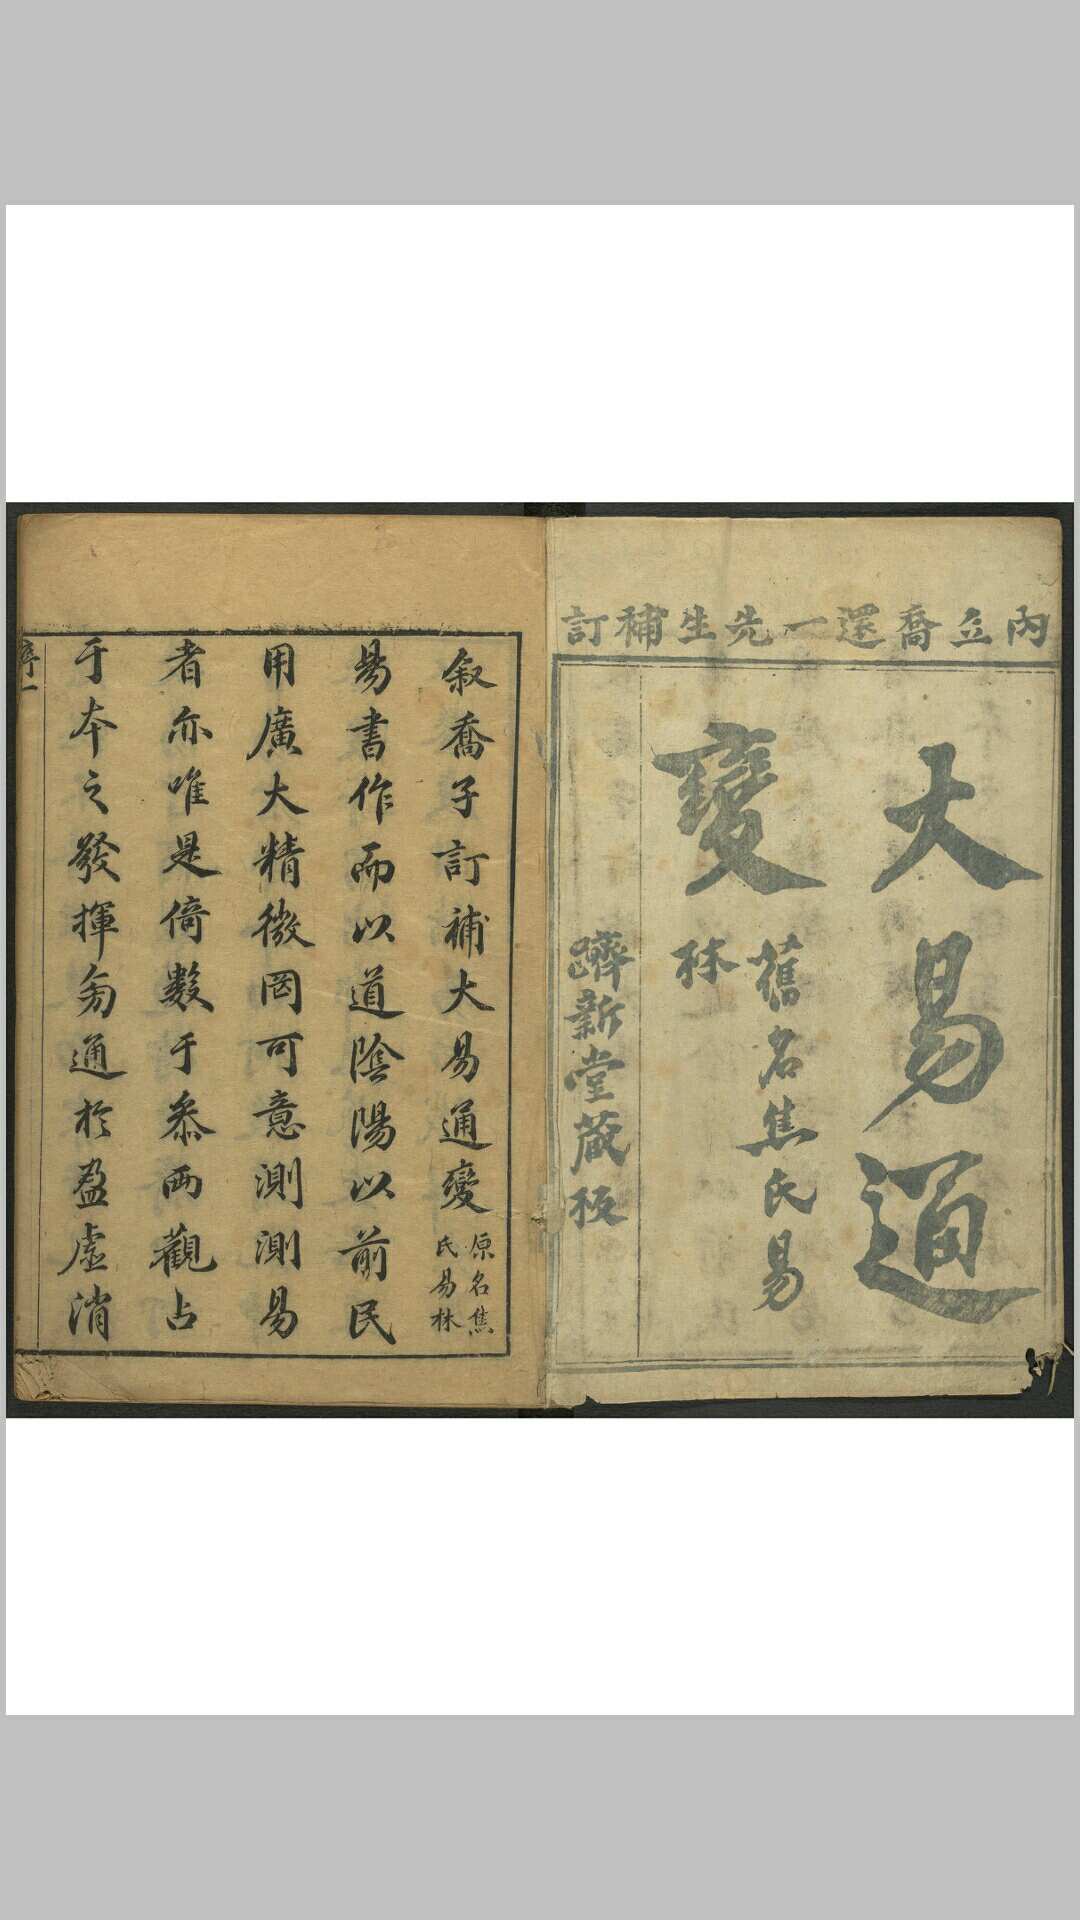 內丘喬還一先生補訂
大易通
變
舊名焦氏易
林
躋新堂藏板
叙喬子訂補大易通變
原名焦
氏易林
易書作而以道陰陽以前民
用廣大精微罔可意測測易
者亦唯是倚數于叅兩觀占
于本之發揮旁通於盈虛消
序一